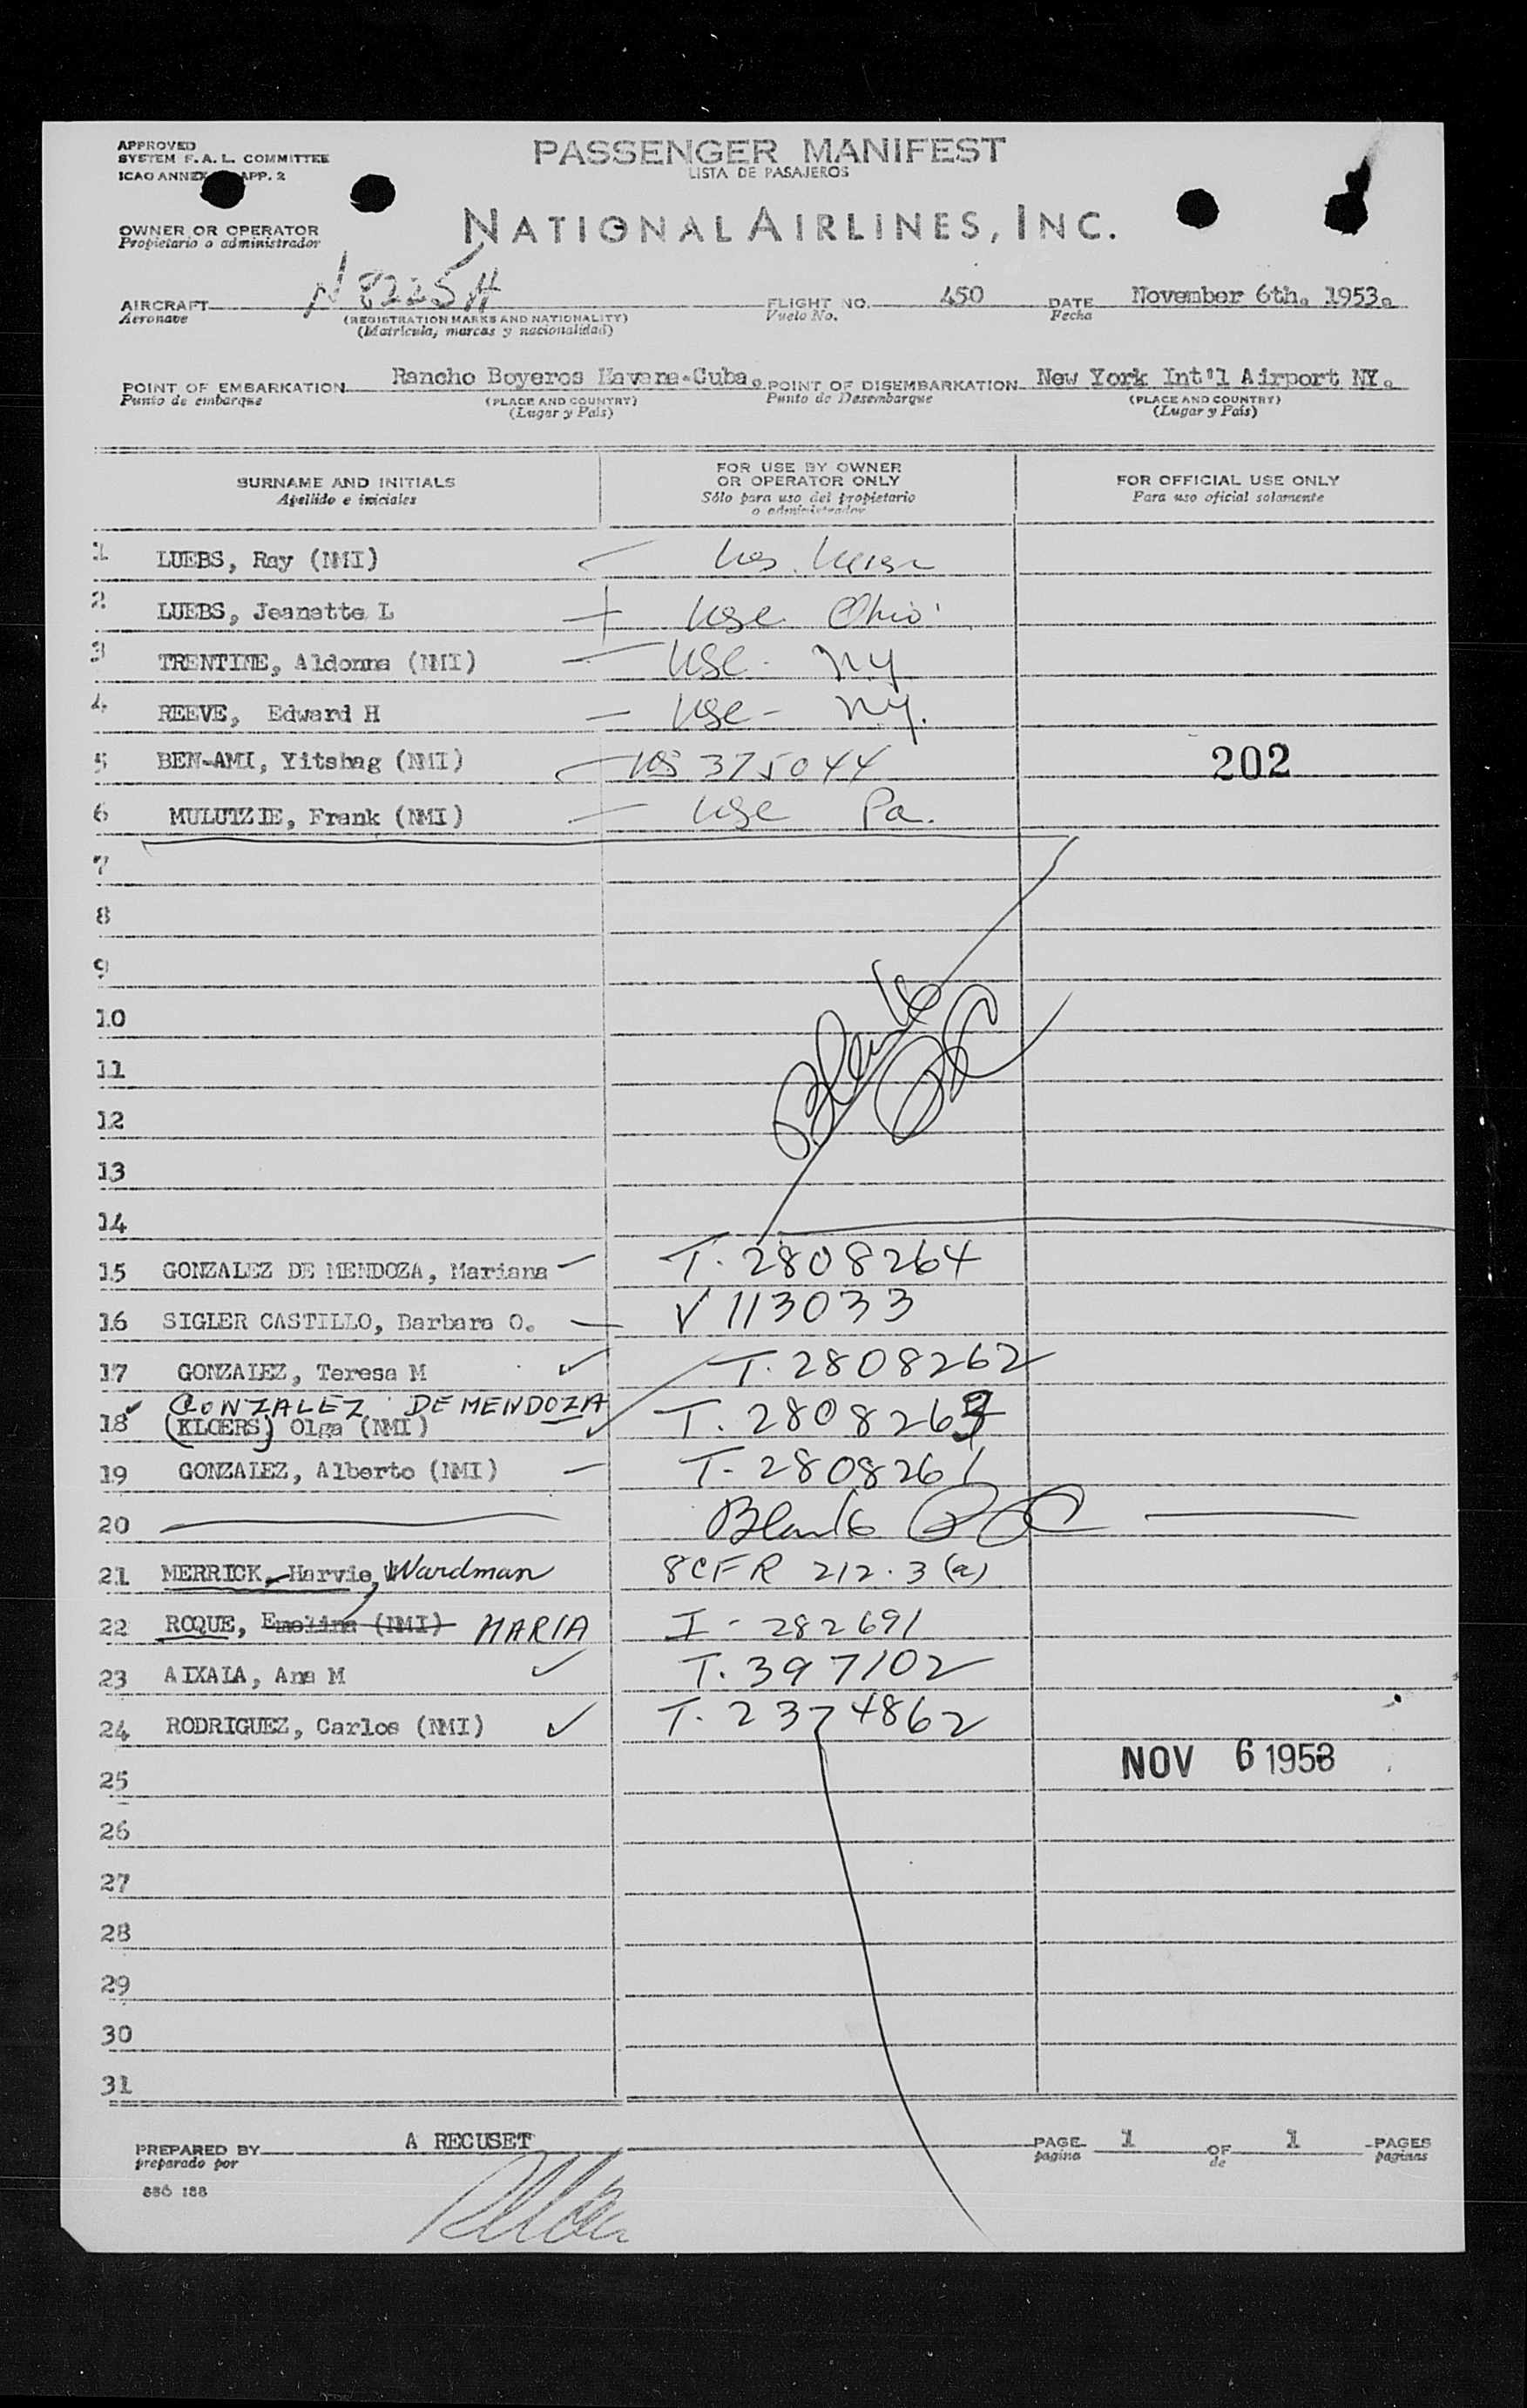 APPROVED
SYSTEM F. A. L. COMMITTEE
ICAO ANNEX APP. 2
PASSENGER MANIFEST
LISTA DE PASAJEROS
OWNER OR OPERATOR
Propietario o administrador
NATIONAL AIRLINES, INC.
AIRCRAFT N8225H FLIGHT NO. 450 DATE November 6th. 1953.
Aeronave (REGISTRATION MARKS AND NATIONALITY) Vuelo No. Fecha
(Matricula, marcas y nacionalidad)
POINT OF EMBARKATION Rancho Boyeros Havana-Cuba. POINT OF DISEMBARKATION New York Int'l Airport NY.
Punto de embarque (PLACE AND COUNTRY) Punto de Desembarque (PLACE AND COUNTRY)
(Lugar y País) (Lugar y País)
SURNAME AND INITIALS FOR USE BY OWNER OR OPERATOR ONLY FOR OFFICIAL USE ONLY
Apellido e iniciales Sólo para uso del propietario o administrador Para uso oficial solamente
1 LUEBS, Ray (NMI)
2 LUEBS, Jeanette L USC Ohio
3 TRENTINE, Aldonna (NMI) USC - NY
4 REEVE, Edward H USC - NY.
5 BEN-AMI, Yitshag (NMI) 375044 202
6 MULUTZIE, Frank (NMI) USC Pa.
7
8
9
10 Blank
11
12
13
14
15 GONZALEZ DE MENDOZA, Mariana T. 2808264
16 SIGLER CASTILLO, Barbara O. V 113033
17 GONZALEZ, Teresa M T. 2808262
GONZALEZ DE MENDOZA
18 (KLOERS) Olga (NMI) T. 2808263
19 GONZALEZ, Alberto (NMI) T- 2808261
20 Blank
21 MERRICK, Harvie, Wardman 8 CFR 212.3(a)
22 ROQUE, Emelina (NMI) MARIA I - 282691
23 AIXALA, Ana M T. 397102
24 RODRIGUEZ, Carlos (NMI) T. 2374862
NOV 6 1953
25
26
27
28
29
30
31
PREPARED BY A RECUSET PAGE 1 OF 1 PAGES
preparado por pagina de paginas
886 188